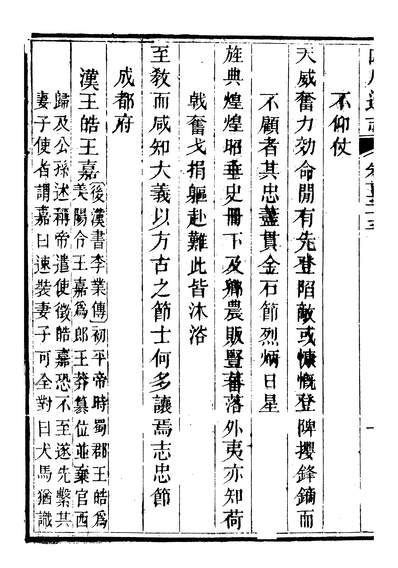 四川通志
不仰仗
天威奮力効命間有先登陷敵或慷慨登陴攖鋒鏑而
不顧者其忠藎貫金石節烈炳日星
旌典煌煌昭垂史冊下及鄉農販豎蕃落外夷亦知荷
戟奮戈捐軀赴難此皆沐浴
至教而咸知大義以方古之節士何多讓焉志忠節
成都府
漢王皓王嘉
後漢書李業傳初平帝時蜀郡王皓為
美陽令王嘉為郎王莽簒位並棄官西
歸及公孫述稱帝遣使徵皓嘉恐不至遂先繫其
妻子使者謂嘉曰速裝妻子可全對曰犬馬猶識